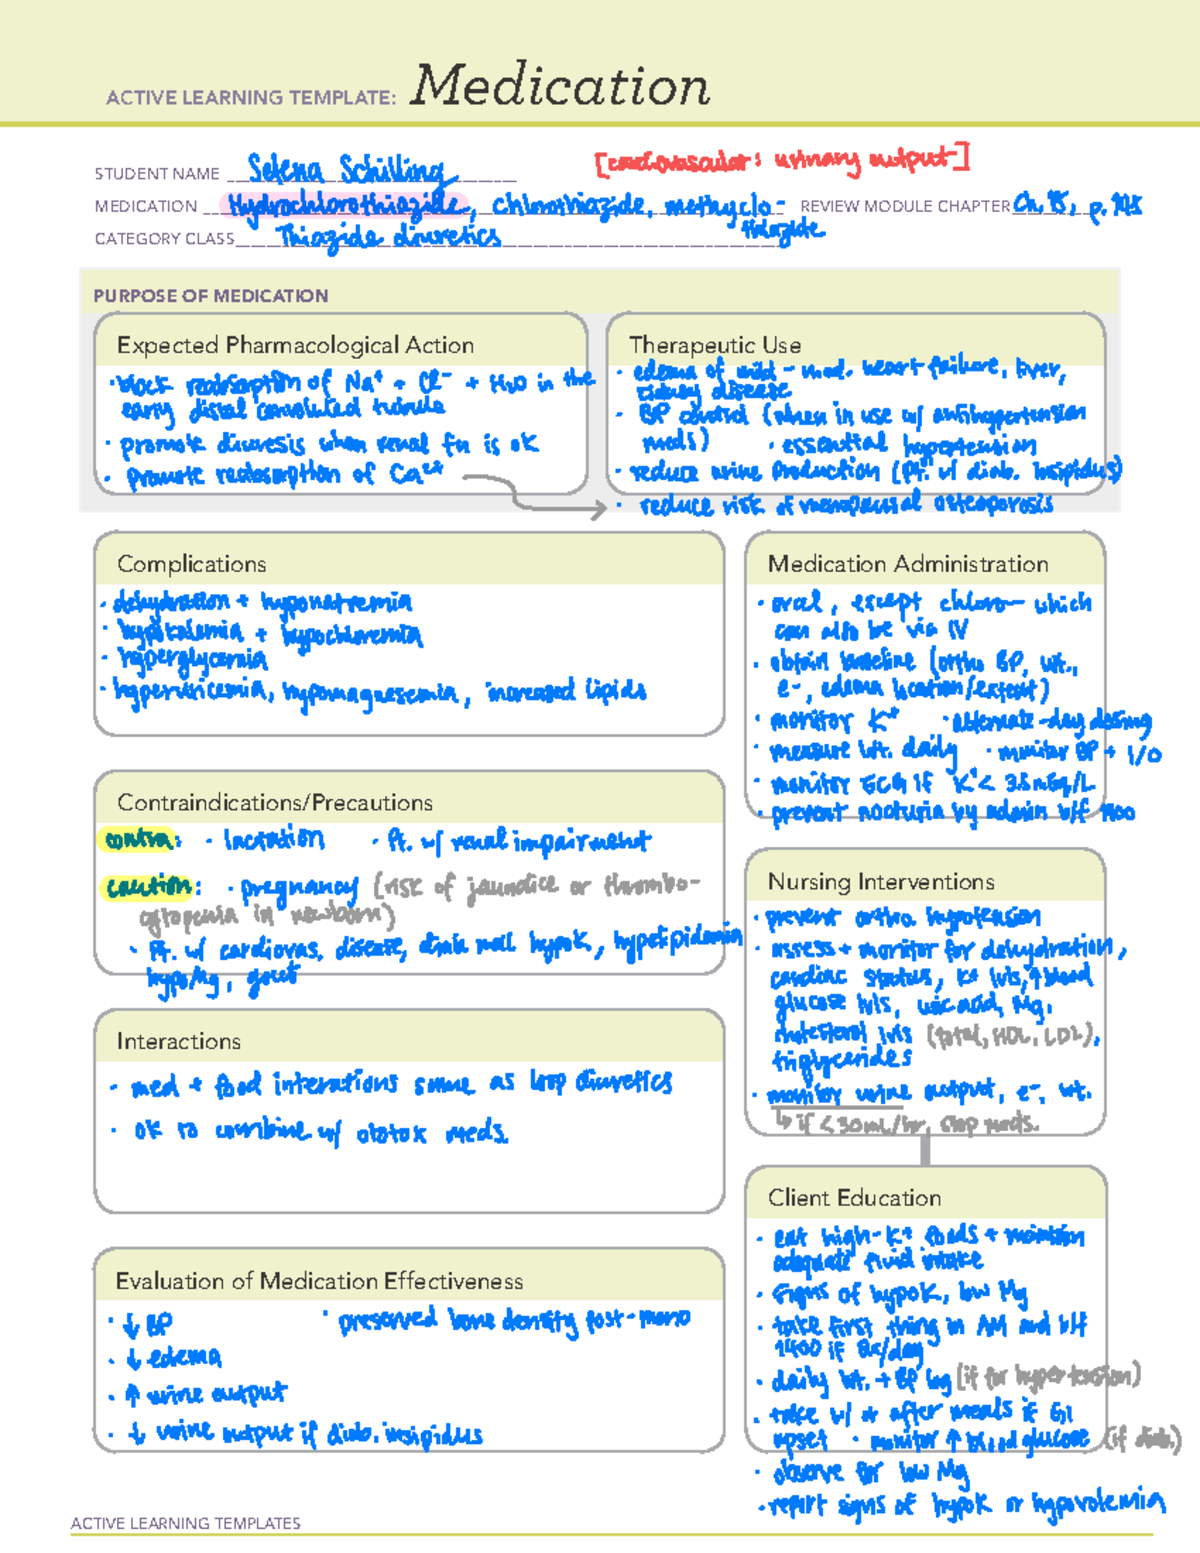 ACTIVE LEARNING TEMPLATE: Medication
STUDENT NAME Selena Schilling
[cardiovascular: urinary output]
MEDICATION Hydrochlorothiazide, chlorothiazide, methyclo-
thiazide
REVIEW MODULE CHAPTER Ch. , p.
CATEGORY CLASS Thiazide diuretics
PURPOSE OF MEDICATION
Expected Pharmacological Action
· block reabsorption of Na+ + Cl- + H2O in the
early distal convoluted tubule
· promote diuresis when renal fn is ok
· promote reabsorption of Ca2+
Therapeutic Use
· edema of mild-mod. heart failure, liver,
kidney disease
· BP control (when in use w/ antihypertension
meds) · essential hypertension
· reduce urine production (Pt. w/ diab. insipidus)
· reduce risk of menopausal osteoporosis
Complications
· dehydration + hyponatremia
· hypokalemia + hypochloremia
· hyperglycemia
· hyperuricemia, hypomagnesemia, increased lipids
Contraindications/Precautions
contra: · lactation · Pt. w/ renal impairment
caution: · pregnancy (risk of jaundice or thrombo-
cytopenia in newborn)
· Pt. w/ cardiovas. disease, hypoK, hyperlipidemia
hypoMg, gout
Interactions
· med + food interations same as loop diuretics
· ok to combine w/ ototox meds.
Evaluation of Medication Effectiveness
· ↓ BP · preserved bone density post-meno
· ↓ edema
· ↑ urine output
· ↓ urine output if diab. insipidus
Medication Administration
· oral, except chloro- which
can also be via IV
· obtain baseline (ortho BP, wt.,
e-, edema location/extent)
· monitor K+ · alternate-day dosing
· measure wt. daily · monitor BP + I/O
· monitor ECG if K+ < 3.5 mEq/L
· prevent nocturia by admin b/f 1400
Nursing Interventions
· prevent ortho. hypotension
· assess + monitor for dehydration,
cardiac status, K+ lvls, ↑ blood
glucose lvls, uric acid, Mg,
cholesterol lvls (total, HDL, LDL),
triglycerides
· monitor urine output, e-, wt.
↳ if < 30 mL/hr, stop meds.
Client Education
· eat high-K+ foods + maintain
adequate fluid intake
· signs of hypoK, low Mg
· take first thing in AM and b/f
1400 if 2x/day
· daily wt. + BP log (if for hypertension)
· take w/ or after meals if GI
upset · monitor ↑ blood glucose (if diab.)
· observe for low Mg
· report signs of hypoK or hypovolemia
ACTIVE LEARNING TEMPLATES